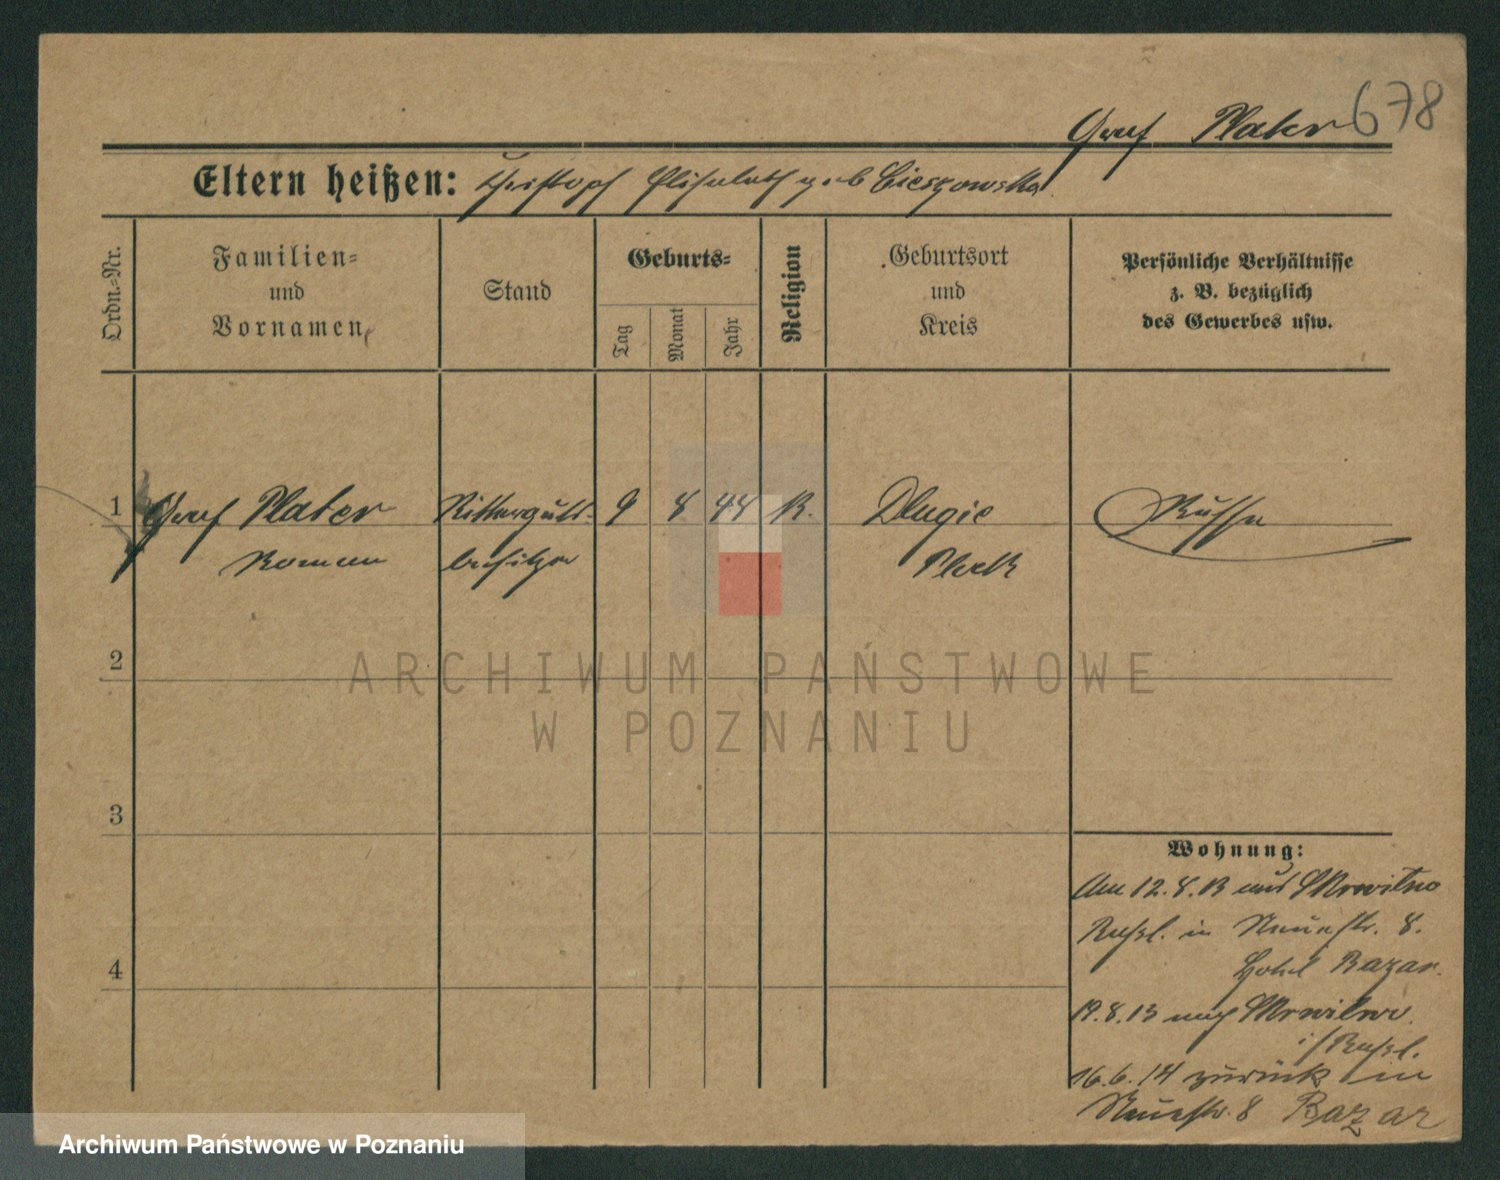 678
Graf Plater
Eltern heißen: Christoph Elisabeth geb Cieszowska
Ordn.-Nr.
Familien-
und
Vornamen
Stand
Geburts-
Tag
Monat
Jahr
Religion
Geburtsort
und
Kreis
Persönliche Verhältnisse
z. B. bezüglich
des Gewerbes usw.
1 Graf Plater Ritterguts- 9 8 44 K. Dlugie Russe
Roman besitzer Plock
2
ARCHIWUM PAŃSTWOWE
W POZNANIU
3
Wohnung:
Am 12.8.13 aus
Rußl. in Neuestr. 8.
4
Hotel Bazar.
19.8.13 nach
i/Rußl.
16.6.14 zurück in
Neuestr. 8 Bazar
Archiwum Państwowe w Poznaniu